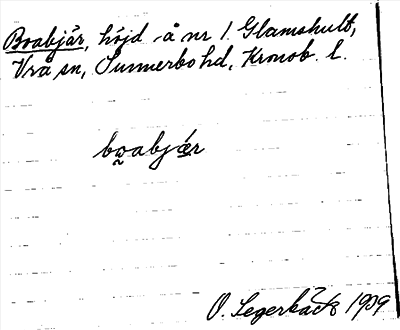 Boabjär, höjd å nr 1. Glamshult,
Vrå sn, Sunnerbo hd, Kronob. l.
boabjær
O. Segerbäck 1909